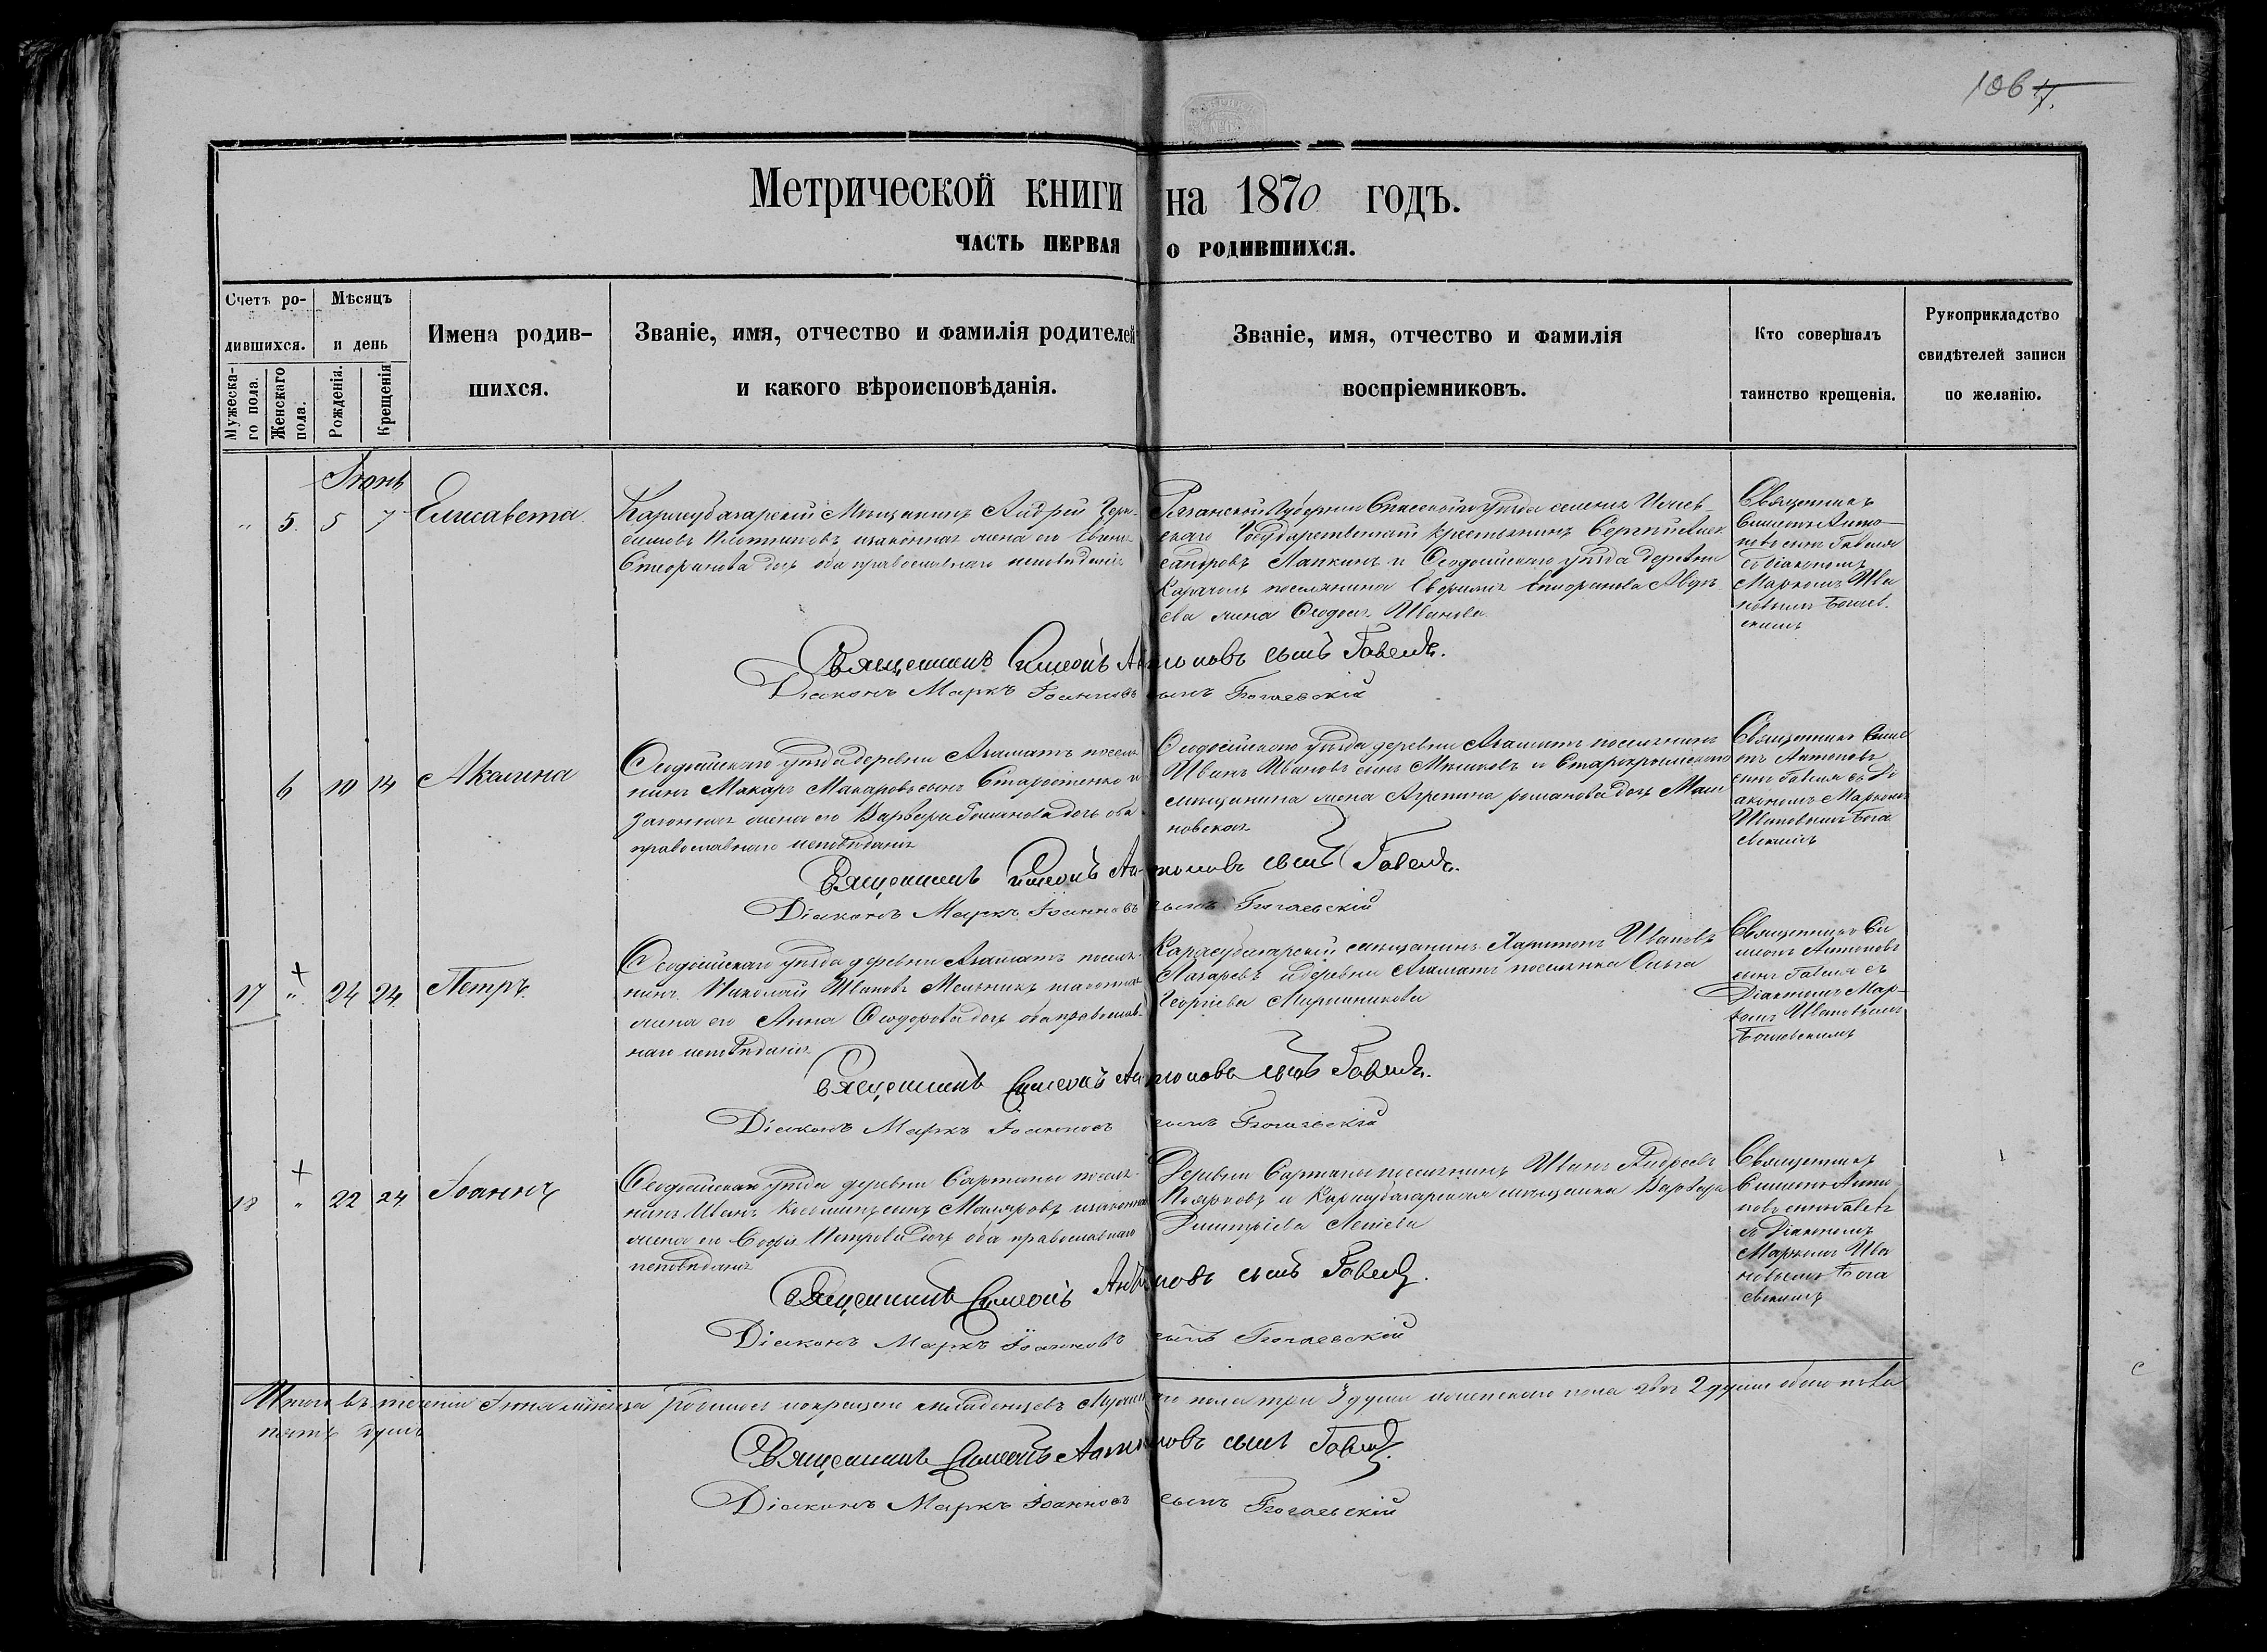 106
Метрической книги на 1870 годъ.
ЧАСТЬ ПЕРВАЯ О РОДИВШИХСЯ.
Счетъ ро-
дившихся.
Мужеска-
го пола.
Женскаго
пола.
Мѣсяцъ
и день
Рожденія.
Крещенія
Имена родив-
шихся.
Званіе, имя, отчество и фамилія родителей
и какого вѣроисповѣданія.
Званіе, имя, отчество и фамилія
воспріемниковъ.
Кто совершалъ
таинство крещенія.
Рукоприкладство
свидѣтелей записи
по желанію.
Іюнь
" 5. 5 7 Елисавета
Карасубазарскій Мѣщанинъ Андрей
законная жена его
дочь оба православнаго исповѣданія
Рязанской Губерніи Спасскаго уѣзда селенія
скаго Государственный крестьянинъ Сергій Алек
сандровъ Лапкинъ и Ѳеодосійскаго уѣзда деревни
поселянина
ева жена Ѳеодосія Иванова
Священникъ
Симеонъ Анто-
новъ сынъ Гавеля
съ діакономъ
Маркомъ Ива
новымъ Богаев-
скимъ
Священникъ Симеонъ Антоновъ сынъ Гавеля.
Діаконъ Маркъ Іоанновъ сынъ Богаевскій
6 10 14 Акилина
Ѳеодосійскаго уѣзда деревни поселя-
нинъ Макаръ Макаровъ сынъ Старостенко и
законная жена его Варвара дочь оба
православнаго исповѣданія
Ѳеодосійскаго уѣзда деревни поселянинъ
Иванъ Ивановъ сынъ и Старокрымскаго
мѣщанина жена Агрипина Романова дочь
новская
Священникъ Симе
онъ Антоновъ
сынъ Гавеля съ Ді
акономъ Маркомъ
Ивановымъ Бога
евскимъ
Священникъ Симеонъ Антоновъ сынъ Гавеля.
Діаконъ Маркъ Іоанновъ сынъ Богаевскій
17 " 24 24 Петръ
Ѳеодосійскаго уѣзда деревни поселя-
нинъ Николай Ивановъ Мельникъ законная
жена его Анна Ѳеодорова дочь оба православ-
наго исповѣданія
Карасубазарскій мѣщанинъ Харитонъ Ивановъ
Лазаревъ и деревни поселянка Ольга
Георгіева Мирошникова
Священникъ Си
меонъ Антоновъ
сынъ Гавеля съ
Діакономъ Мар-
комъ Ивановымъ
Богаевскимъ
Священникъ Симеонъ Антоновъ сынъ Гавеля.
Діаконъ Маркъ Іоанновъ сынъ Богаевскій
18 " 22 24 Іоаннъ
Ѳеодосійскаго уѣзда деревни Сартаны поселя-
нинъ Иванъ сынъ Маляровъ законная
жена его Софія Петрова дочь оба православнаго
исповѣданія
Деревни Сартаны поселянинъ Иванъ Андреевъ
и Карасубазарская мѣщанка Варвара
Дмитріева
Священникъ
Симеонъ Анто
новъ сынъ Гавеля
съ Діакономъ
Маркомъ Ива
новымъ Бога
евскимъ
Священникъ Симеонъ Антоновъ сынъ Гавеля.
Діаконъ Маркъ Іоанновъ сынъ Богаевскій
Итого въ теченіи Іюня мѣсяца родилось и окрещено младенцевъ Мужескаго пола три 3 души женскаго пола двѣ 2 души обоего пола
пять душъ
Священникъ Симеонъ Антоновъ сынъ Гавеля.
Діаконъ Маркъ Іоанновъ сынъ Богаевскій